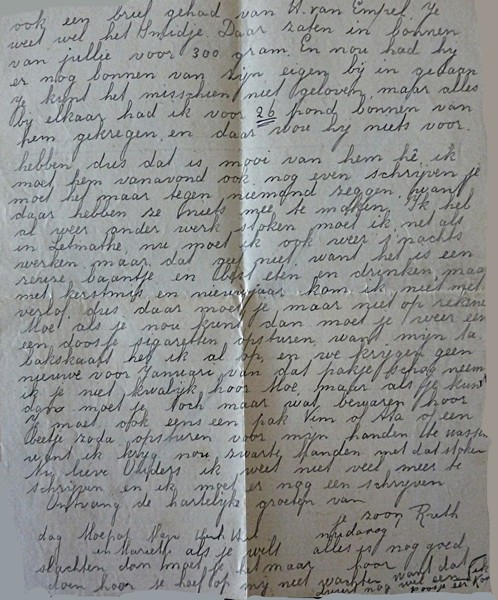 ook een brief gehad van H. van Empel. Je
weet wel het Smidje. Daar zaten in bonnen
van jullie voor 300 gram. En nou had hy
er nog bonnen van zijn eigen bij in gedaan
Je kunt het misschien niet geloven maar alles
by elkaar had ik voor 26 pond bonnen van
hem gekregen en daar wou hy niets voor
hebben dus dat is mooi van hem hê. ik
moet hem vanavond ook nog even schrijven je
moet het maar tegen niemand zeggen want
daar hebben ze niets mee te maken. Ik heb
al weer ander werk stoken moet ik net als
in Letmathe, nu moet ik ook weer s'nachts
werken maar dat geeft niet want het is een
baantje en eten en drinken, maar
met kerstmis en nieuwjaar kom ik niet met
verlof dus daar moet je maar niet op rekenen
Moe als je nou kunt dan moet je weer een
een doosje sigaretten opsturen want mijn ta
bakskaart heb ik al op, en we krijgen geen
nieuwe voor Januari van dat pakje shag neem
ik je niet kwalijk hoor Moe, maar als je kunt
dan moet je toch maar wat bewaren hoor
Je moet ook eens een pak Vim of Ata of een
beetje zoda opsturen voor mijn handen te wassen
want ik krijg nou zwarte handen met dat stoken
Nu lieve Ouders ik weet niet veel meer te
schrijven en ik moet er nog een schrijven
Ontvang de hartelijke groeten van
je zoon
dag Moe
en als je wilt alles is nog goed
slachten dan moet je het maar voor want dat
doen hoor je hoef op mij niet wachten nog wel een